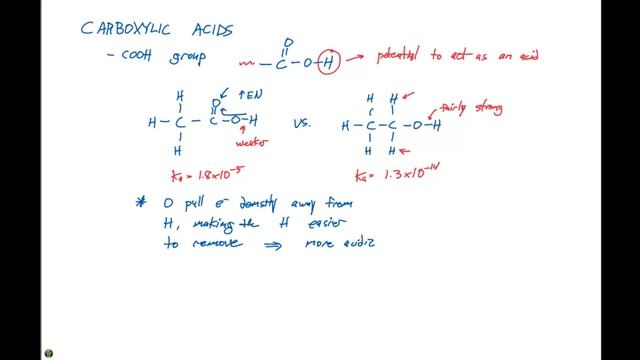 CARBOXYLIC ACIDS
- COOH group
O
- C - O - H → potential to act as an acid
H O ↑EN H H
H - C - C - O - H vs. H - C - C - O - H fairly strong
H weaker H H
Ka = 1.8 x 10-5 Ka = 1.3 x 10-14
* O pull e- density away from
H, making the H easier
to remove ⇒ more acidic